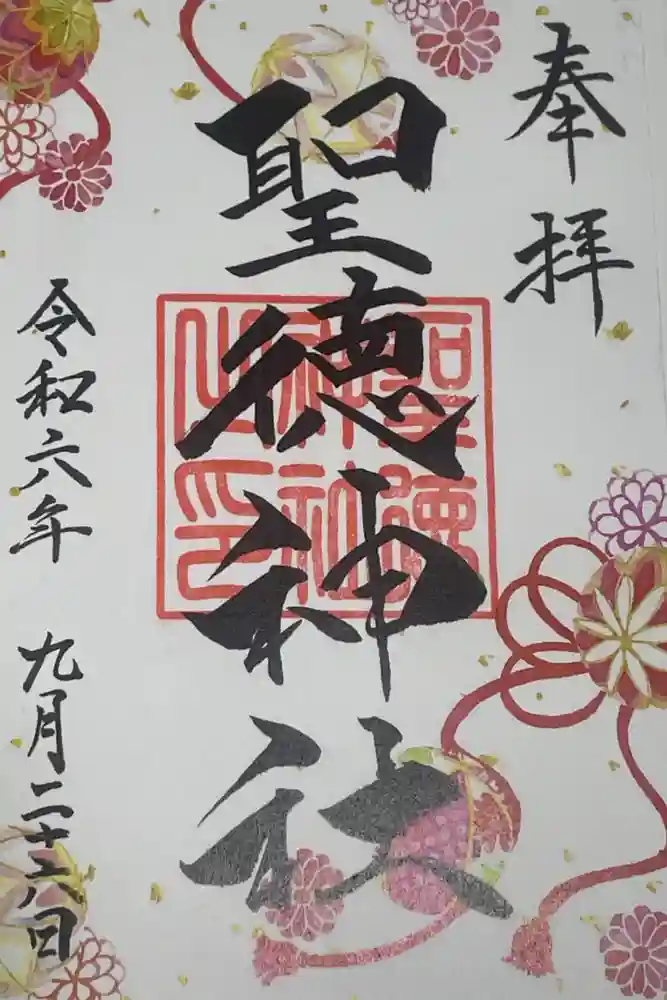 奉拝
聖徳神社
聖徳神社之印
令和六年 九月二十八日